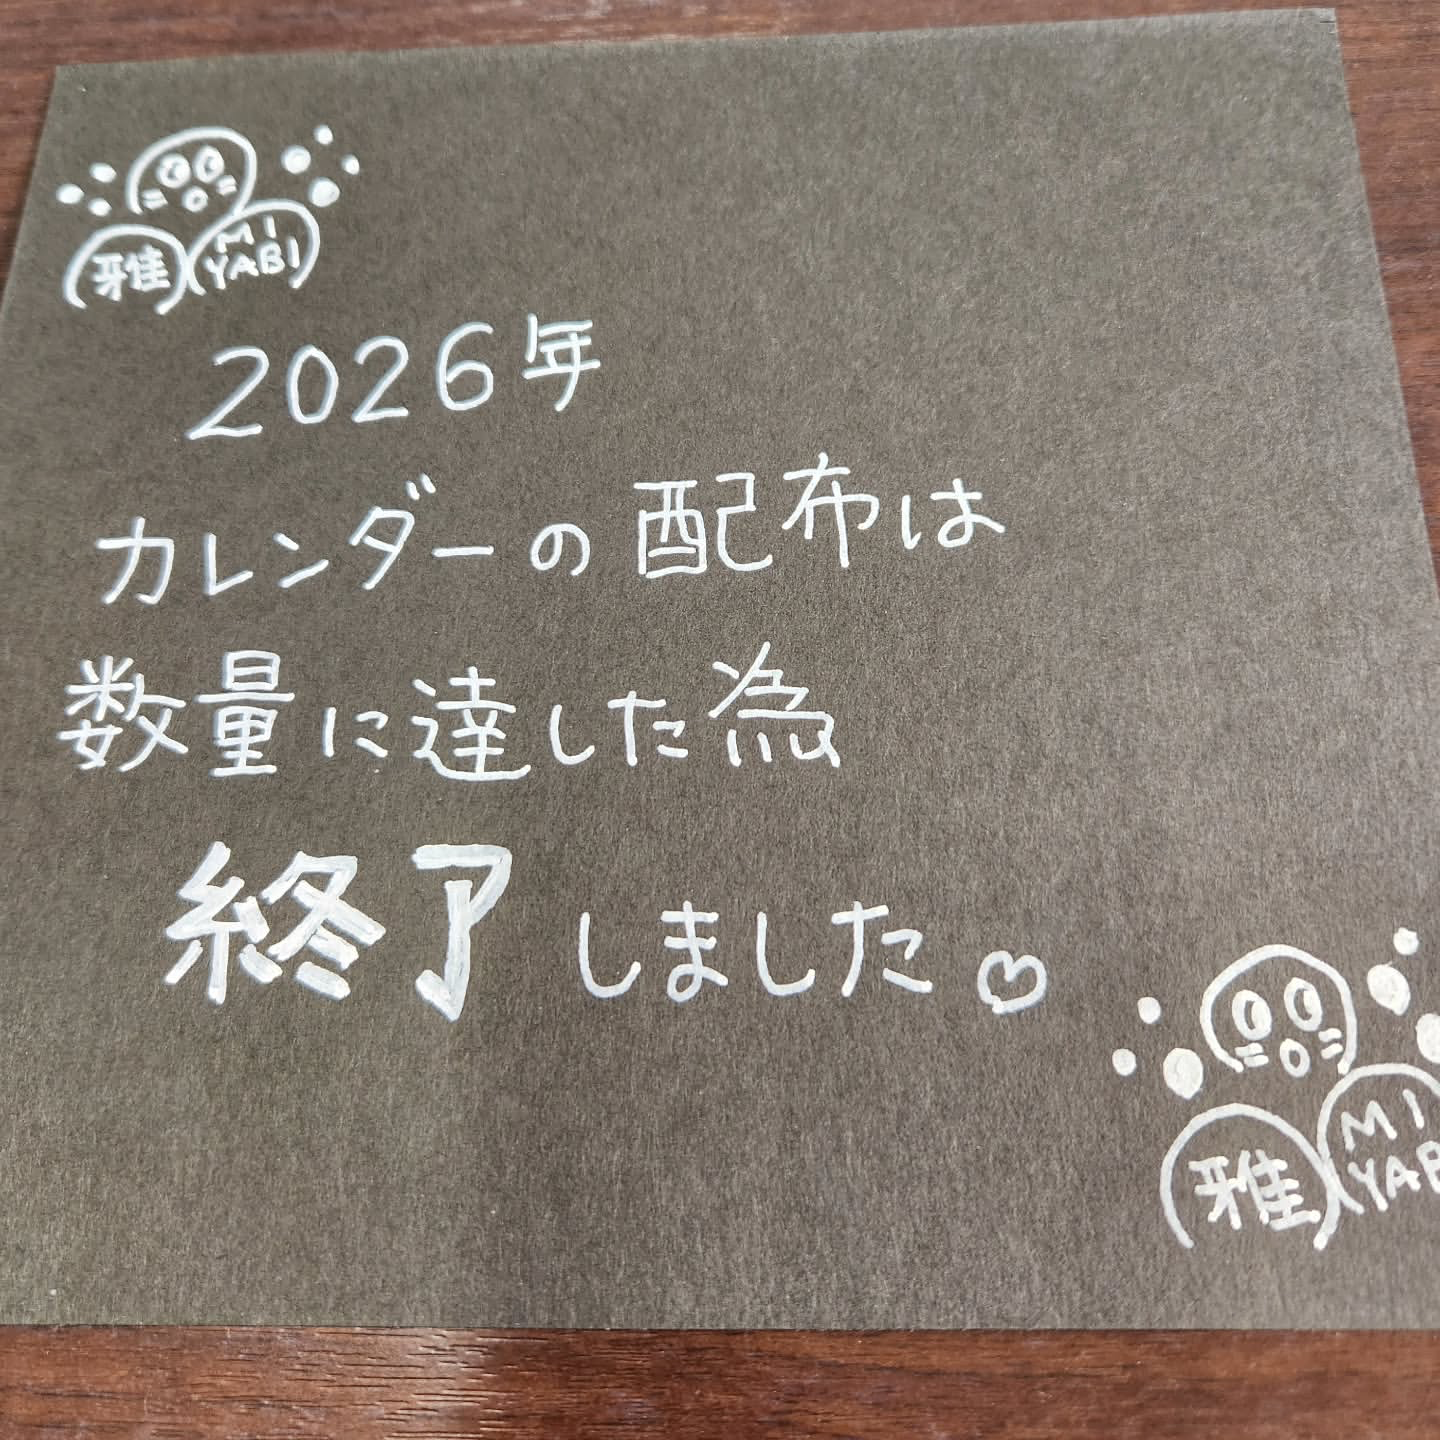 雅 MI
YABI
2026年
カレンダーの配布は
数量に達した為
終了しました♡
雅 MI
YAB